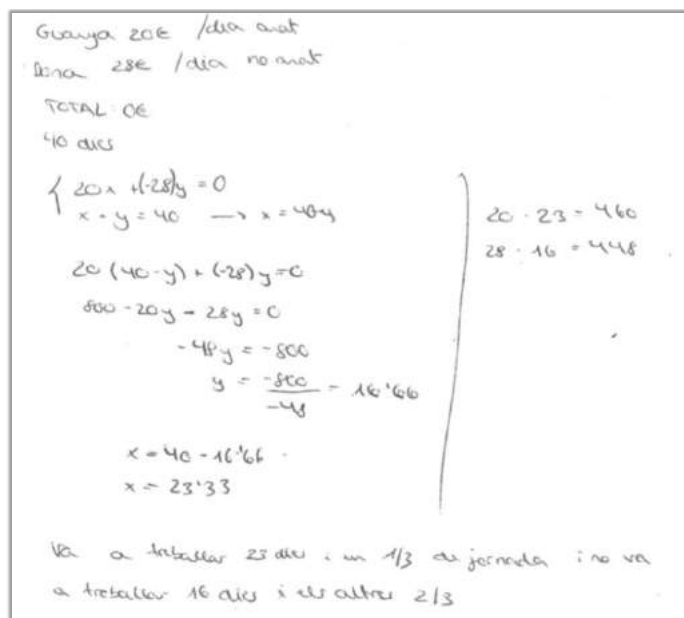 Guanya 20€ /dia anat
Dona 28€ /dia no anat
TOTAL 0€
40 dies
20x +(-28)y = 0
x + y = 40 → x = 40-y
20 (40-y) + (-28)y = 0
800 - 20y - 28y = 0
- 48y = -800
y = -800/-48 = 16'66
x = 40 - 16'66
x = 23'33
20 · 23 = 460
28 · 16 = 448
Va a treballar 23 dies i un 1/3 de jornada i no va
a treballar 16 dies i els altres 2/3